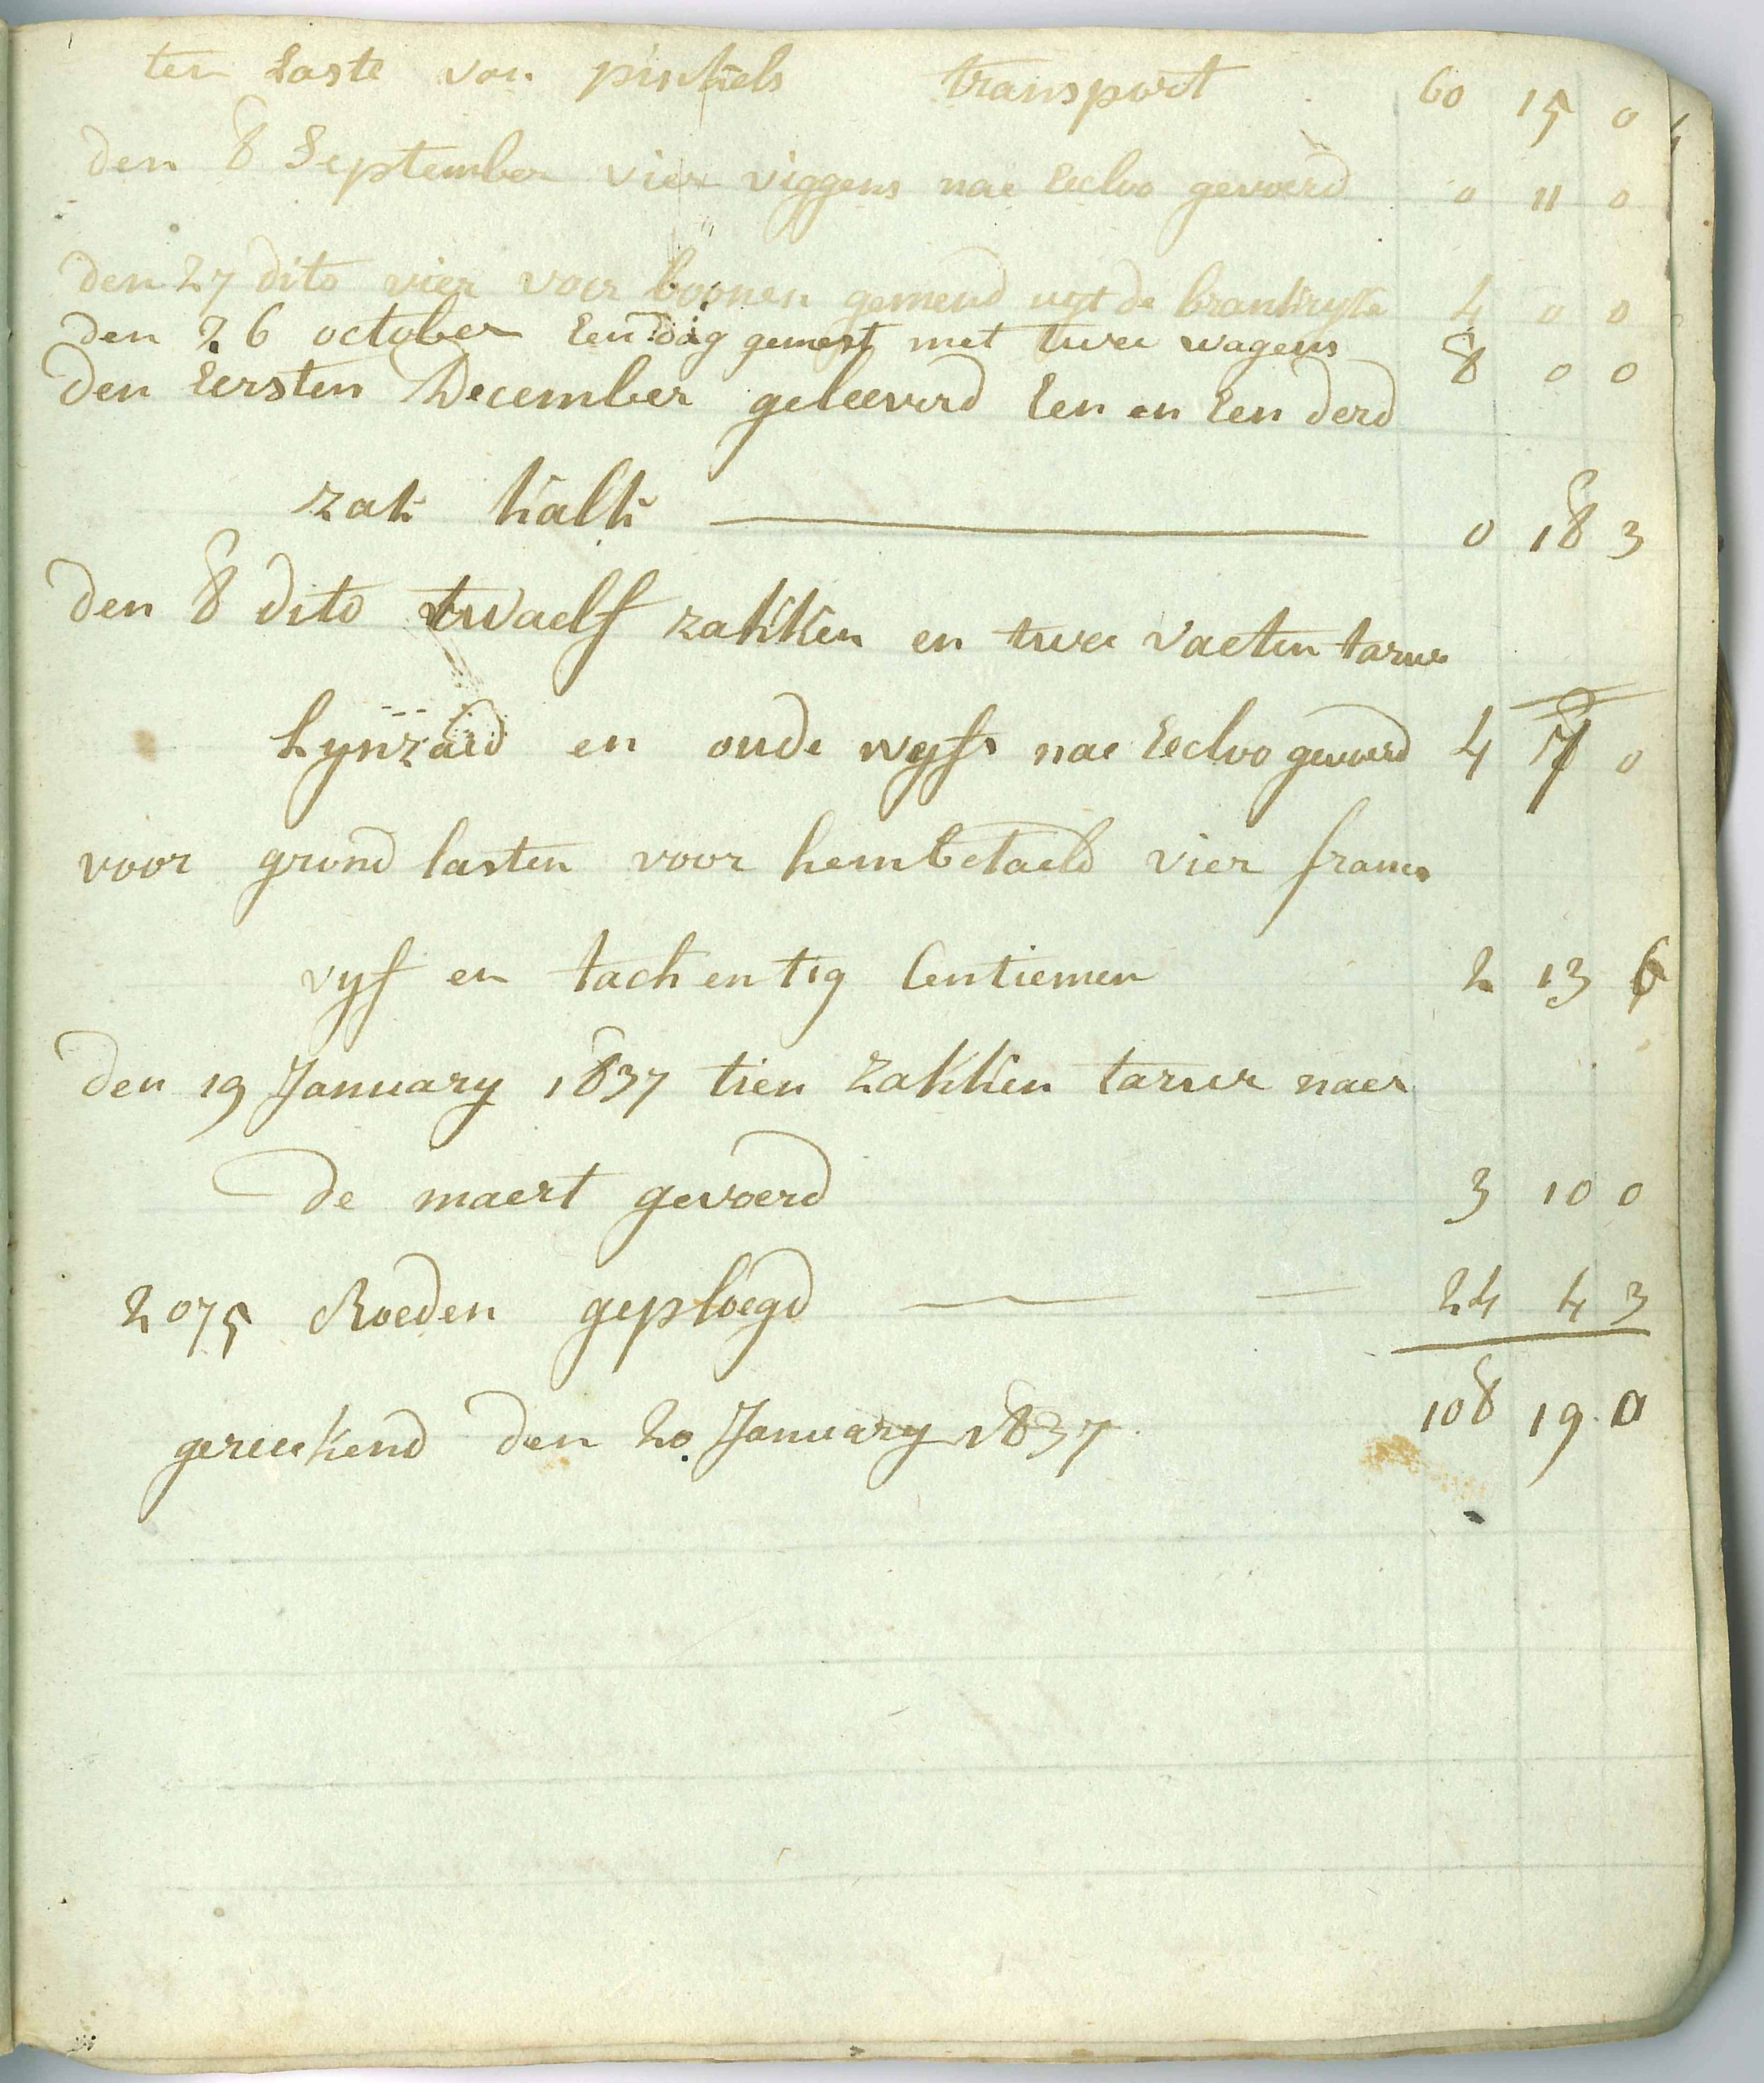 ten Laste van pinkels transport 60 15 0
den 8 September vier viggens nae Eecloo gevoerd 0 11 0
den 27 dito vier voer boonen gemend uyt de 4 0 0
den 26 october Een dag gemest met twee wagens 8 0 0
den Eersten December geleeverd Een en Een derd
zak kalk 0 18 3
den 8 dito twaelf zakken en twee vaeten tarwe
Lynzaed en oude wyfs nae Eecloo gevoerd 4 7 0
voor grond lasten voor hem betaeld vier francs
vyf en tachentig Centiemen 2 13 6
den 19 January 1837 tien zakken tarwe naer
de maert gevoerd 3 10 0
2075 Roeden geploegd 24 4 3
gereekend den 20 January 1837 108 19 0